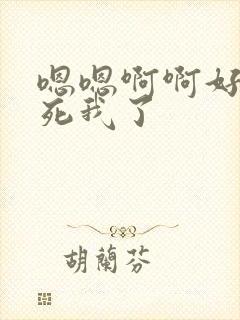 嗯嗯啊啊好
死我了
胡蘭芬